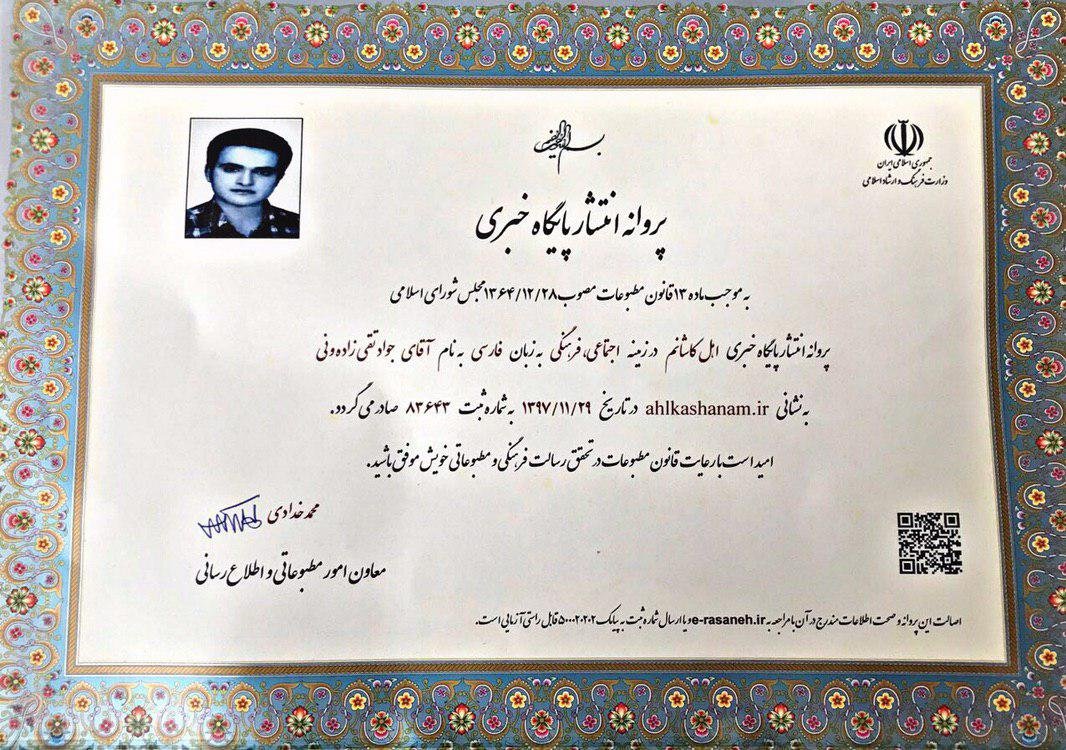 بسم الله الرحمن الرحیم
جمهوری اسلامی ایران
وزارت فرهنگ و ارشاد اسلامی
پروانه انتشار پایگاه خبری
به موجب ماده ۱۳ قانون مطبوعات مصوب ۱۳۶۴/۱۲/۲۸ مجلس شورای اسلامی
پروانه انتشار پایگاه خبری اهل کاشانم در زمینه اجتماعی، فرهنگی به زبان فارسی به نام آقای جواد تقی زاده ونی
به نشانی ahlkashanam.ir در تاریخ ۱۳۹۷/۱۱/۲۹ به شماره ثبت ۸۳۶۴۳ صادر می گردد.
امید است با رعایت قانون مطبوعات در تحقق رسالت فرهنگی و مطبوعاتی خویش موفق باشید.
محمد خدادی
معاون امور مطبوعاتی و اطلاع رسانی
اصالت این پروانه و صحت اطلاعات مندرج در آن با مراجعه به e-rasaneh.ir و یا ارسال شماره ثبت به پیامک ۵۰۰۰۲۰۲۰۲ قابل راستی آزمایی است.